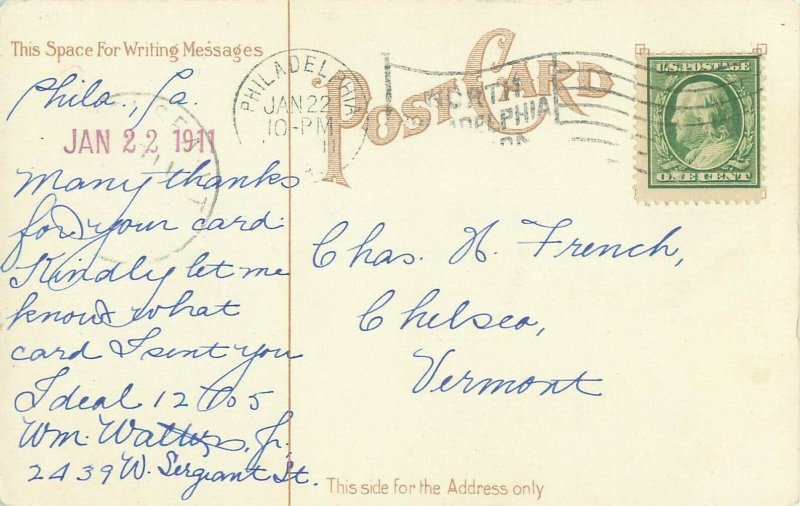 This Space For Writing Messages
Phila., Pa.
JAN 22 1911
Many thanks
for your card
Kindly let me
know what
card I sent you
Ideal 12 to 5
Wm. Watters, Jr.
2439 W. Sergeant St.
POST CARD
PHILADELPHIA
JAN 22
10-PM
NORTH
ADELPHIA
PA.
U.S. POSTAGE
ONE CENT
Chas. H. French,
Chelsea,
Vermont
This side for the Address only